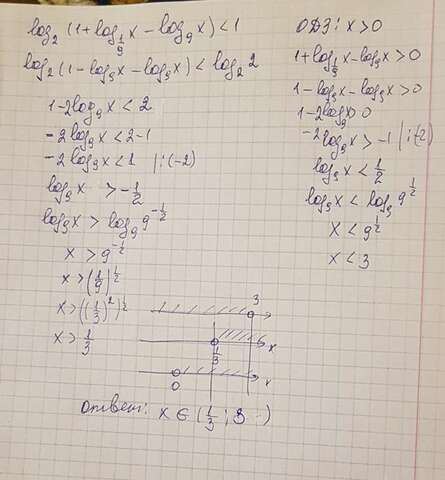 log₂ (1 + log_{1/9} x − log₉ x) < 1
log₂ (1 − log₉ x − log₉ x) < log₂ 2
1 − 2log₉ x < 2
− 2 log₉ x < 2 − 1
− 2 log₉ x < 1 | : (−2)
log₉ x > − 1/2
log₉ x > log₉ 9^{−1/2}
x > 9^{−1/2}
x > (1/9)^{1/2}
x > ((1/3)²)^{1/2}
x > 1/3
ОДЗ: x > 0
1 + log_{1/9} x − log₉ x > 0
1 − log₉ x − log₉ x > 0
1 − 2 log₉ x > 0
−2 log₉ x > −1 | : (−2)
log₉ x < 1/2
log₉ x < log₉ 9^{1/2}
x < 9^{1/2}
x < 3
3
1/3 x
0 x
Ответ: x ∈ (1/3 ; 3)